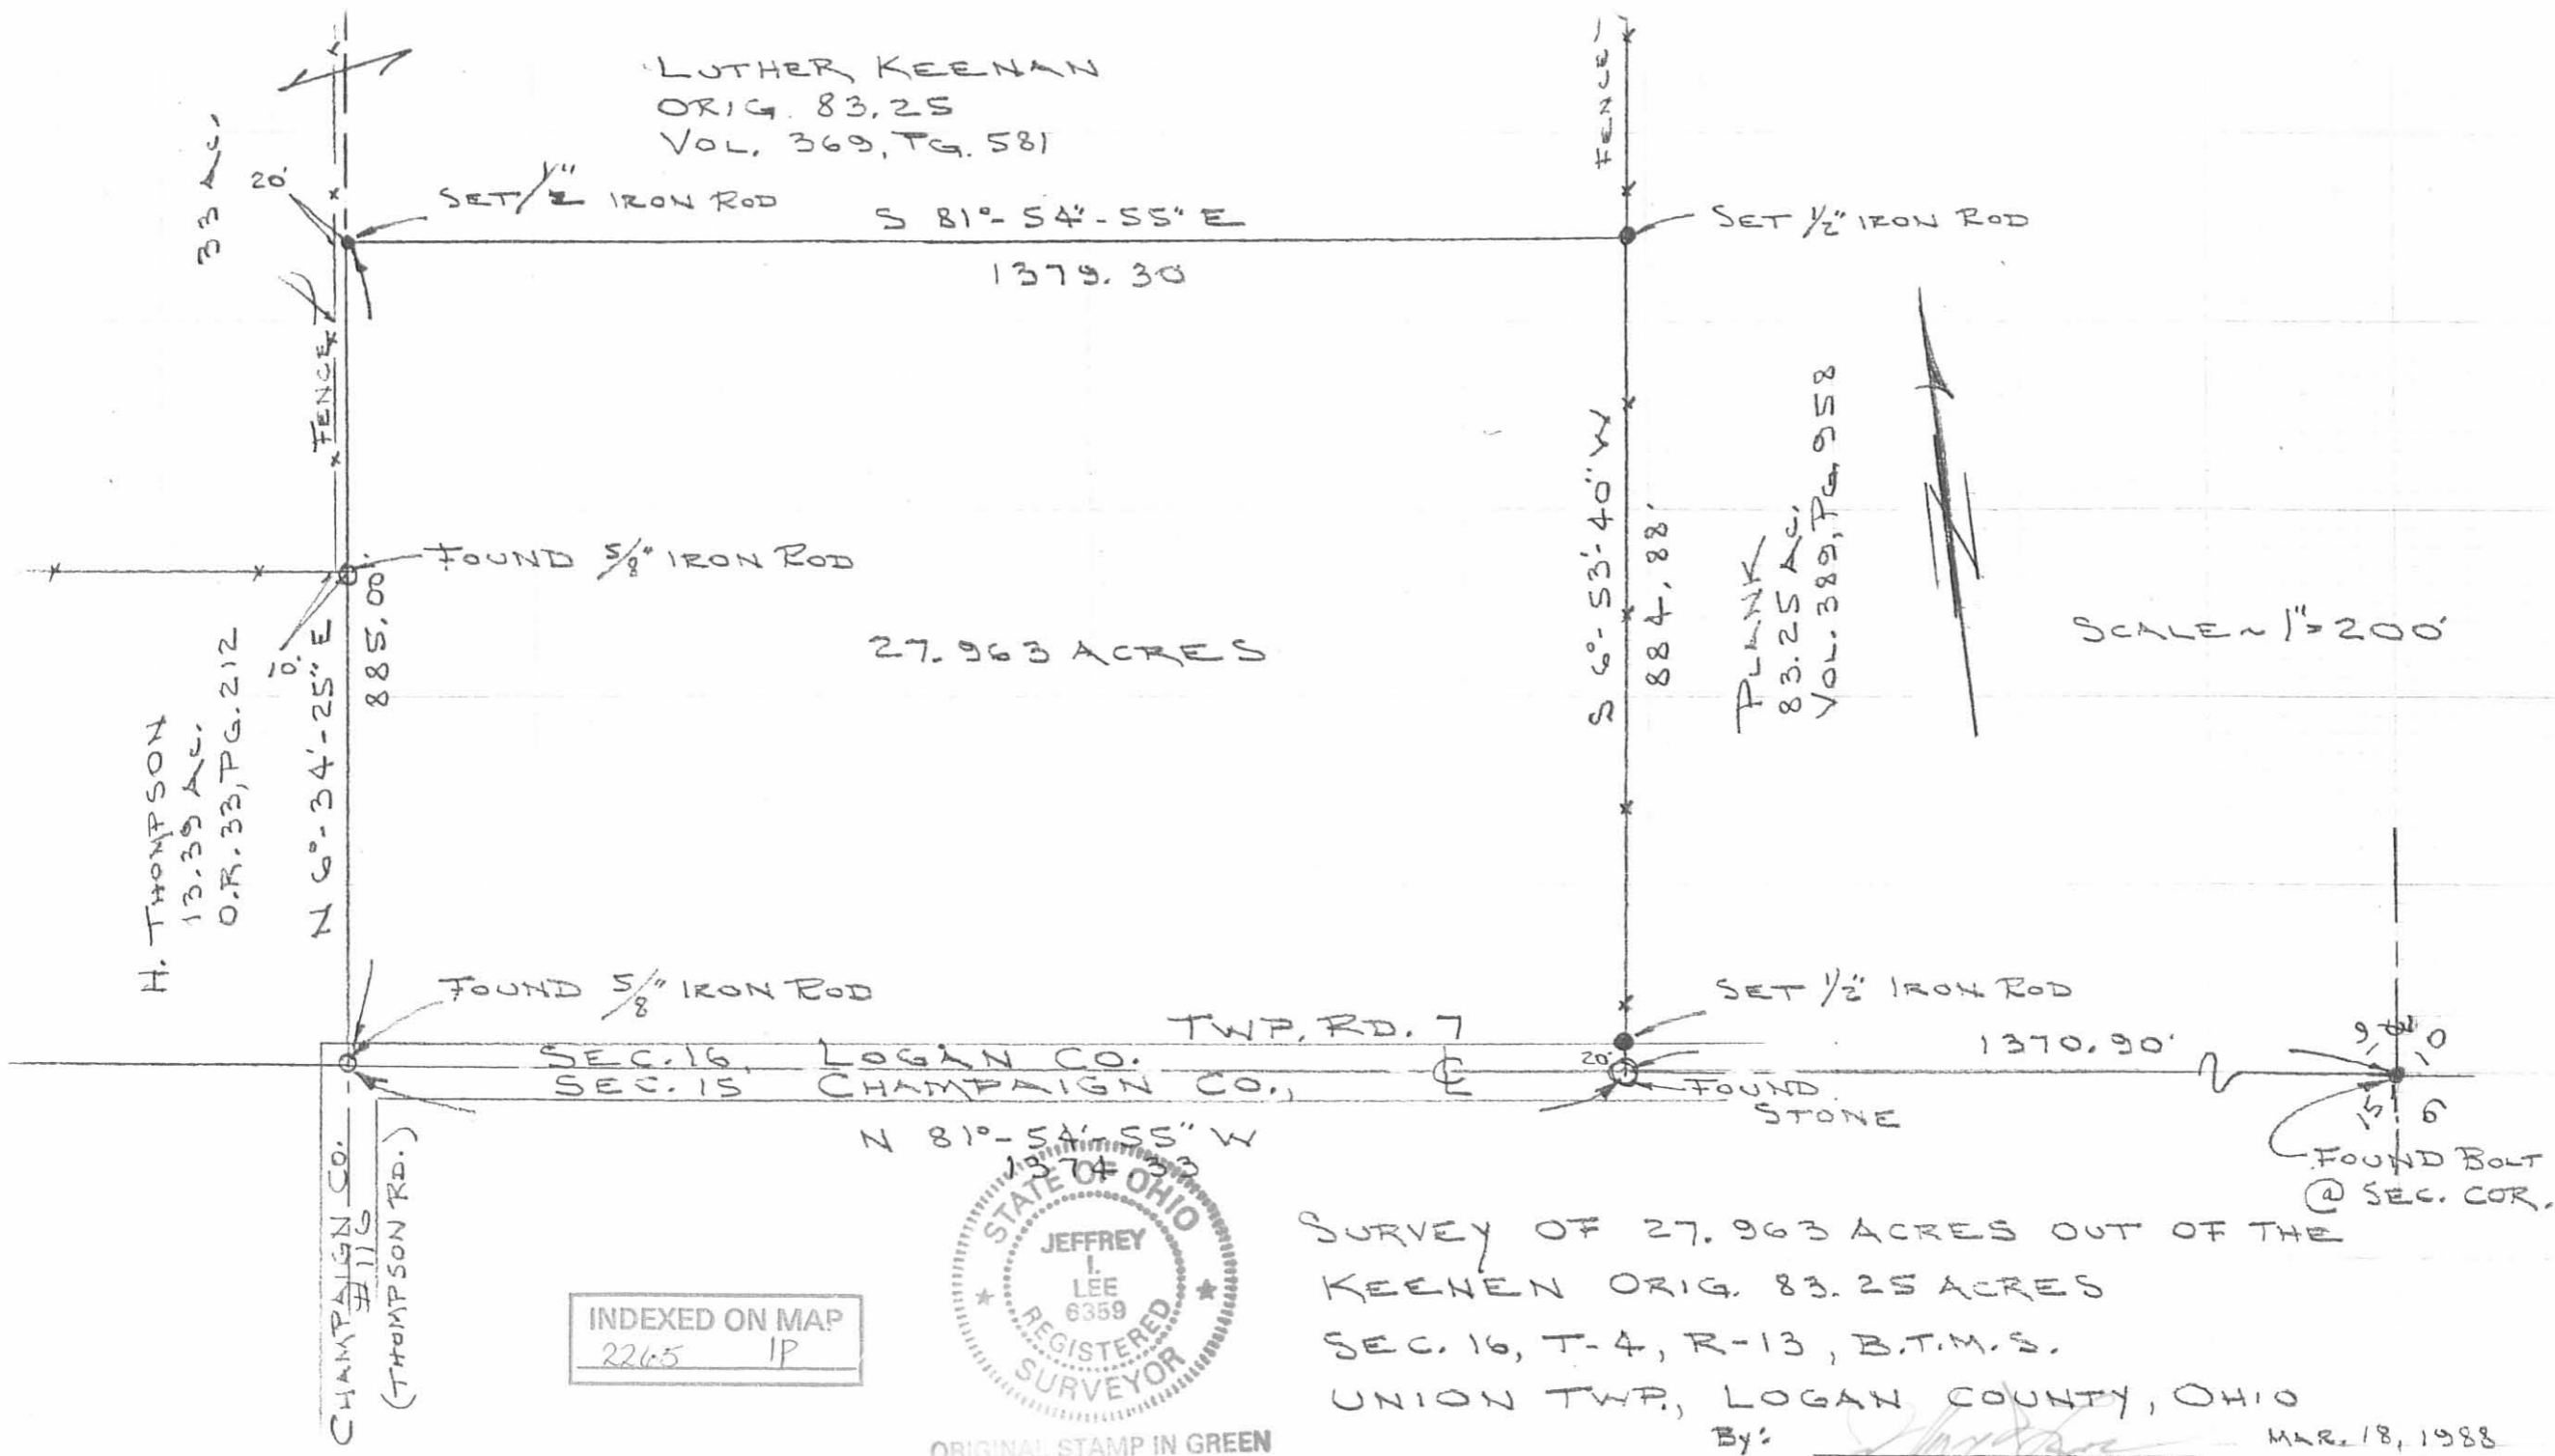 LUTHER KEENAN
ORIG. 83.25
VOL. 369, PG. 581
33 AC.
20'
SET 1/2" IRON ROD
S 81°-54'-55" E
1379.30
FENCE
SET 1/2" IRON ROD
FENCE
FOUND 5/8" IRON ROD
10'
N 6°-34'-25" E
885.00'
27.963 ACRES
S 6°-53'-40" W
884.88'
PLANK
83.25 AC.
VOL. 389, PG. 958
N
SCALE ~ 1"=200'
H. THOMPSON
13.39 AC.
O.R. 33, PG. 212
FOUND 5/8" IRON ROD
SET 1/2" IRON ROD
TWP. RD. 7
SEC. 16, LOGAN CO.
SEC. 15 CHAMPAIGN CO.,
20'
FOUND
STONE
1370.90'
9
10
15
FOUND BOLT
@ SEC. COR.
N 81°-54'-55" W
1374.33
CHAMPAIGN CO.
#116
(THOMPSON RD.)
STATE OF OHIO
JEFFREY
I.
LEE
6359
REGISTERED
SURVEYOR
INDEXED ON MAP
2265 1P
ORIGINAL STAMP IN GREEN
SURVEY OF 27.963 ACRES OUT OF THE
KEENEN ORIG. 83.25 ACRES
SEC. 16, T-4, R-13, B.T.M.S.
UNION TWP., LOGAN COUNTY, OHIO
By:
MAR. 18, 1988